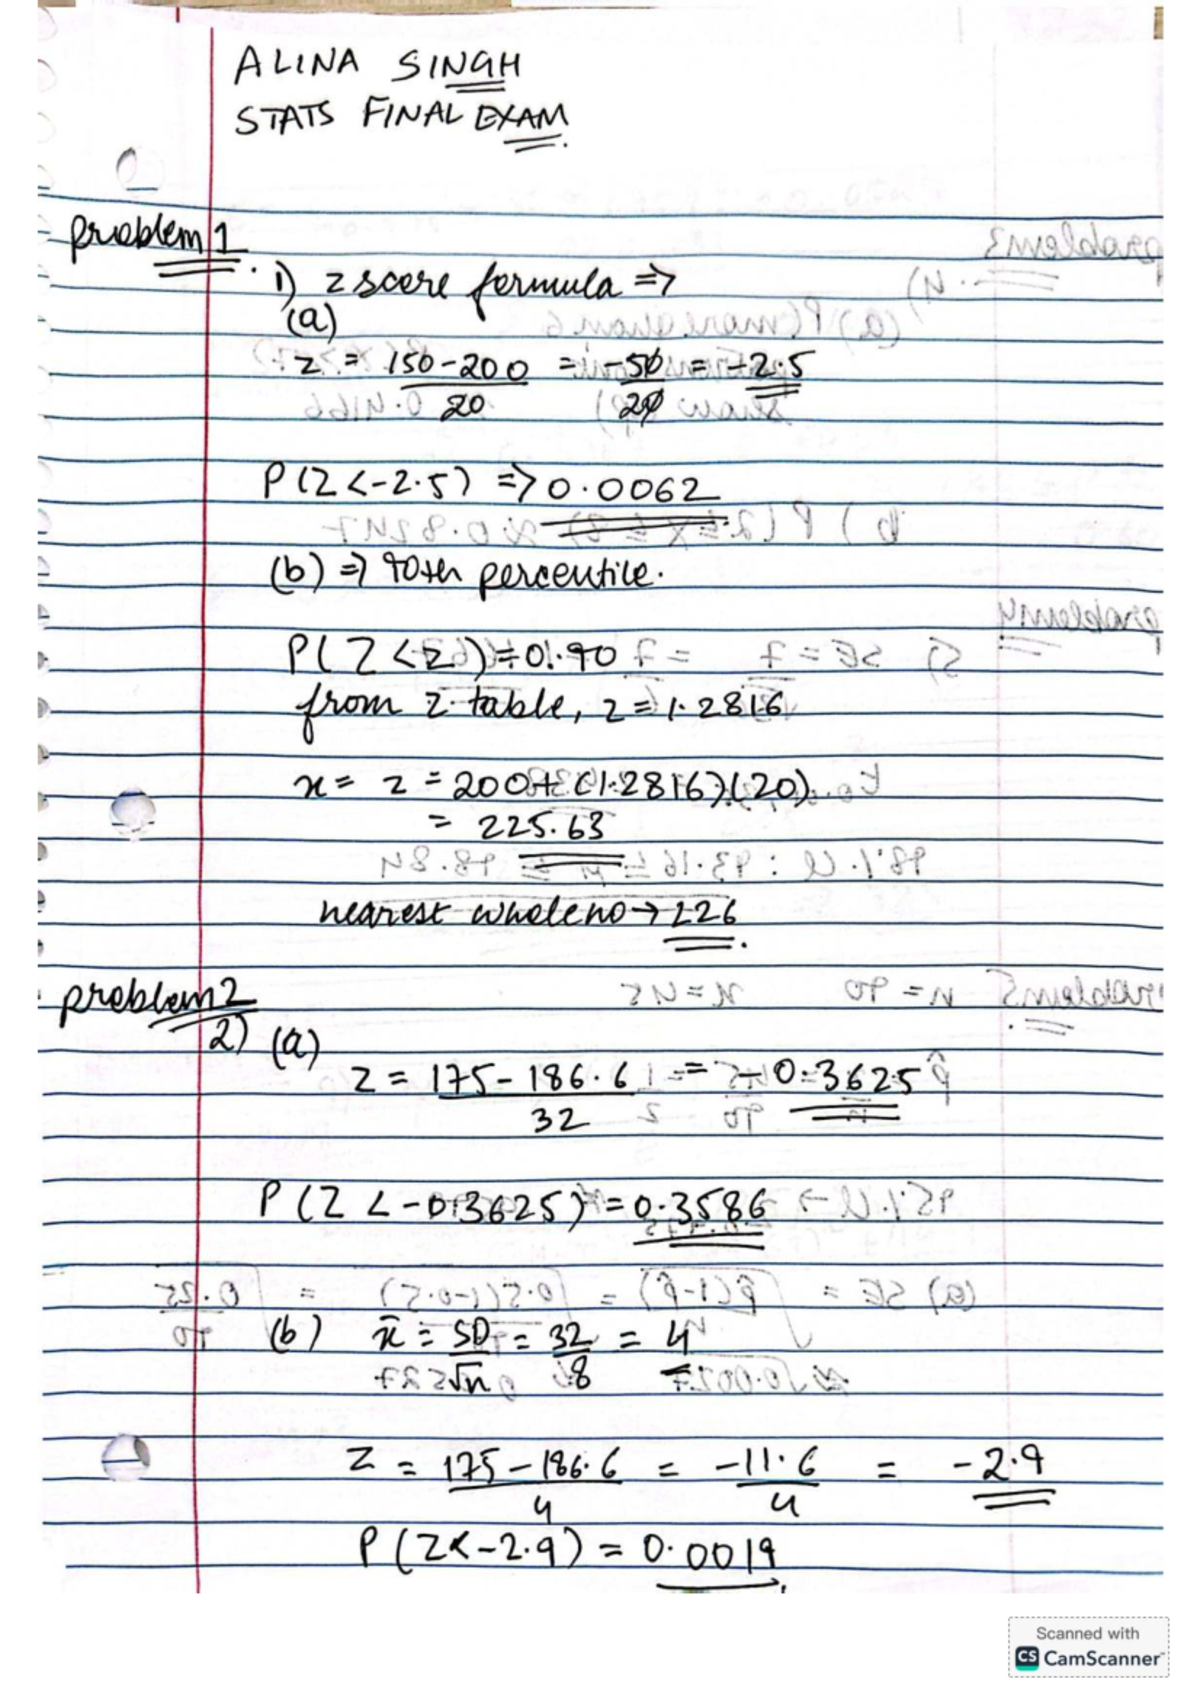 ALINA SINGH
STATS FINAL EXAM
problem 1
i) z score formula =>
(a)
z = 150-200 = -50 = -2.5
20 20
P(Z<-2.5) => 0.0062
(b) => 90th percentile.
P(Z<Z) = 0.90
from z table, z = 1.2816
x = z = 200+(1.2816)(20)
= 225.63
nearest whole no → 226
problem 2
2) (a)
z = 175-186.6 = -0.3625
32
P(Z<-0.3625) = 0.3586
(b) x̄ = SD = 32 = 4
√n 8
z = 175-186.6 = -11.6 = -2.9
4 4
P(Z<-2.9) = 0.0019
Scanned with
CS CamScanner